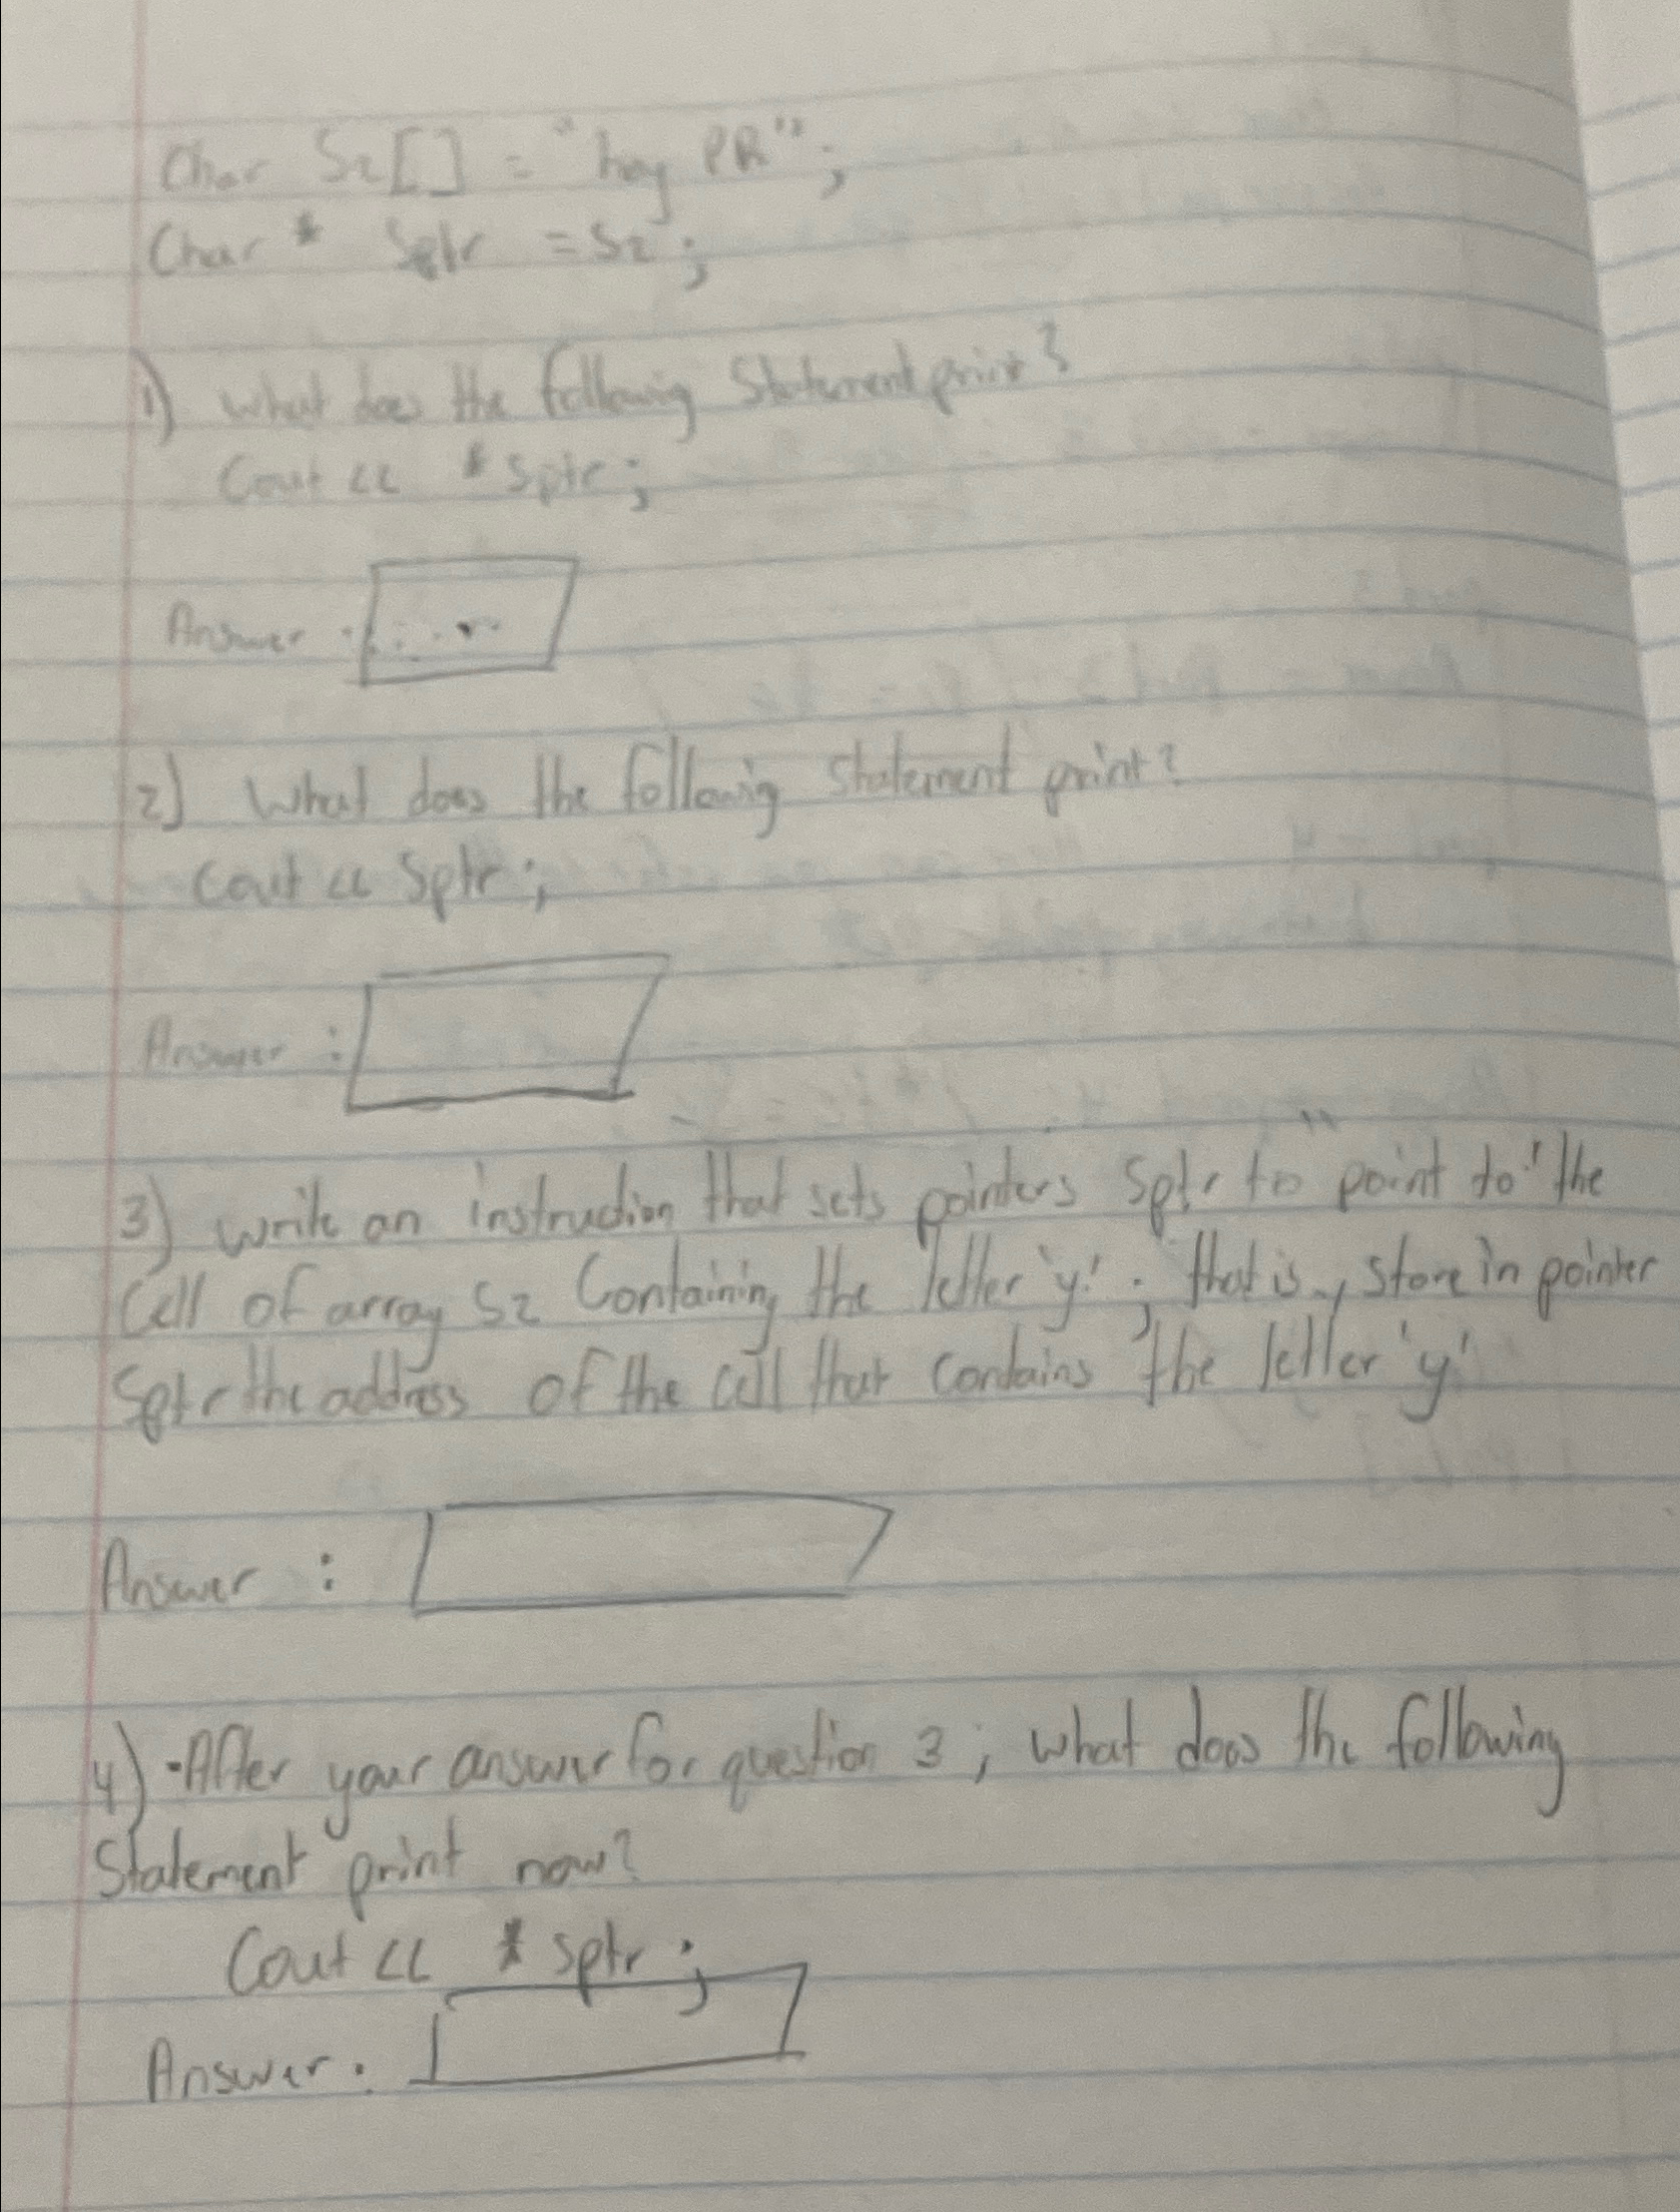 Char S2[] = "hey PR";
Char * Sptr = S2;
1) What does the following Statement print?
Cout << * Sptr;
Answer :
2) What does the following statement print?
Cout << Sptr;
Answer :
3) write an instruction that sets pointers Sptr to "point to" the
Cell of array S2 Containing the letter 'y'; that is, store in pointer
Sptr the address of the cell that contains the letter 'y'
Answer :
4) -After your answer for question 3, what does the following
Statement print now?
Cout << * sptr;
Answer :